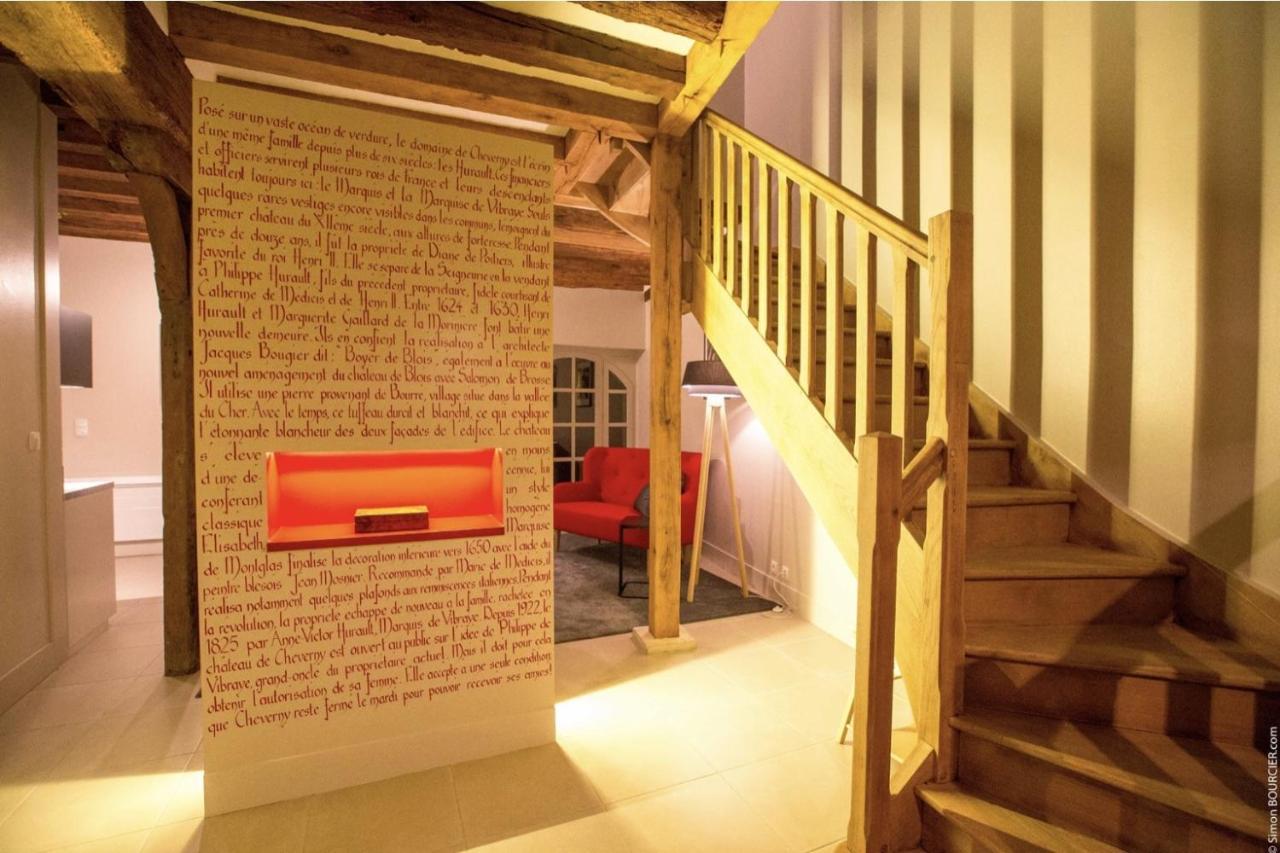 Posé sur un vaste océan de verdure, le domaine de Cheverny est l'écrin
d'une même famille depuis plus de six siècles : les Hurault. Ces financiers
et officiers servirent plusieurs rois de France et leurs descendants
habitent toujours ici : le Marquis et la Marquise de Vibraye. Seuls
quelques rares vestiges encore visibles dans les communs, témoignent du
premier château du XIIème siècle, aux allures de forteresse. Pendant
près de douze ans, il fût la propriété de Diane de Poitiers, illustre
favorite du roi Henri II. Elle se separe de la Seigneurie en la vendant
à Philippe Hurault, fils du precedent proprietaire, fidele courtisan de
Catherine de Medicis et de Henri II. Entre 1624 et 1630, Henri
Hurault et Marguerite Gaillard de la Moriniere font bâtir une
nouvelle demeure. Ils en confient la realisation a l'architecte
Jacques Bougier dit : " Boyer de Blois", egalement a l'œuvre au
nouvel amenagement du château de Blois avec Salomon de Brosse
Il utilise une pierre provenant de Bourre, village situe dans la vallée
du Cher. Avec le temps, ce tuffeau durcit et blanchit, ce qui explique
l'étonnante blancheur des deux façades de l'édifice. Le château
s'élève en moins
d'une de- cennie, lui
conférant un style
classique homogène
Elisabeth, Marquise
de Montglas finalise la décoration interieure vers 1650 avec l'aide du
peintre blesois Jean Mosnier. Recommande par Marie de Medicis, il
réalisa notamment quelques plafonds aux reminiscences italiennes. Pendant
la revolution, la propriete echappe de nouveau a la famille, rachetée en
1825 par Anne-Victor Hurault, Marquis de Vibraye. Depuis 1922, le
château de Cheverny est ouvert au public sur l'idee de Philippe de
Vibraye, grand-oncle du propriétaire actuel. Mais il doit pour cela
obtenir l'autorisation de sa femme. Elle accepte a une seule condition
que Cheverny reste fermé le mardi pour pouvoir recevoir ses amies!
© Simon BOURCIER.com